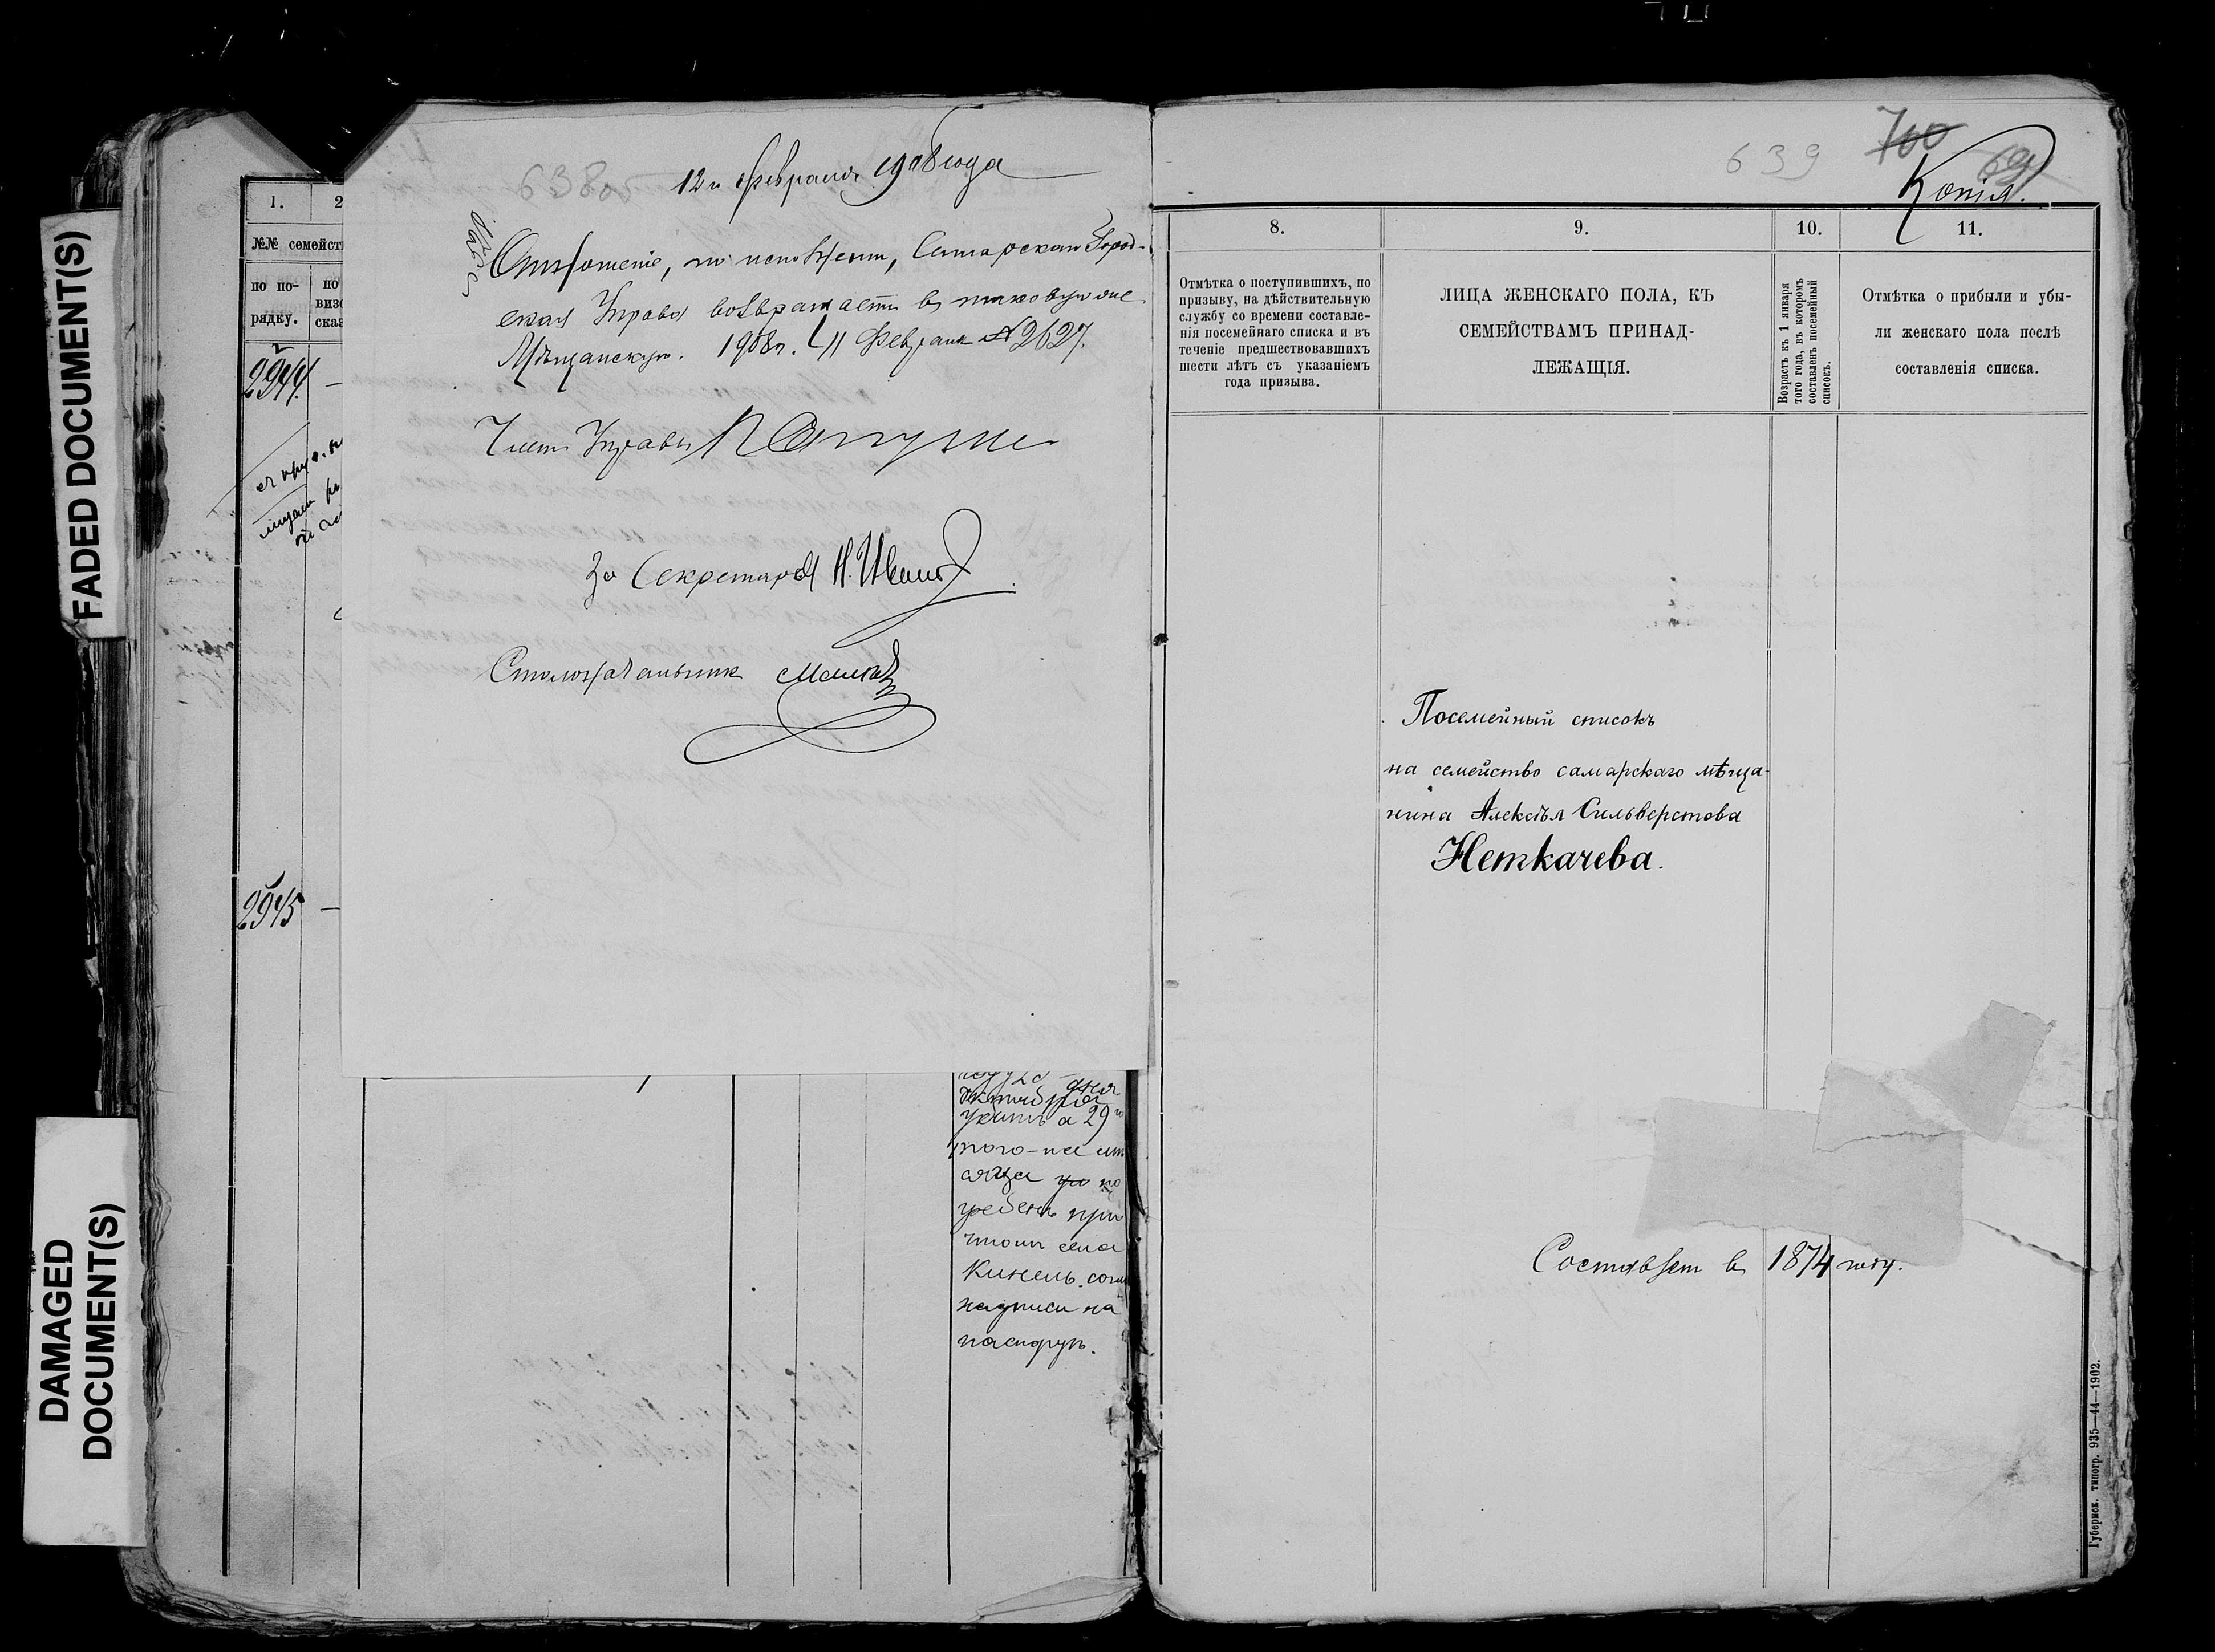 FADED DOCUMENT(S)
DAMAGED
DOCUMENT(S)
1.
2
№№ семейст
по по-
рядку.
по
2944.
2945
638об
12го февраля 1908 года
Отношеніе, по исполненіи, Самарская Город-
ская Управа возвращаетъ въ таковую же
Мѣщанскую. 1908 г. 11 Февраля № 2627.
Членъ Управы
За Секретаря Н. Иванов
Столоначальникъ
дня
октября
29го
того-же мѣ
сяца по
гребенъ прич
томъ села
Кинель. согл
надписи на
паспортѣ.
639
700
69
Копія.
8.
9.
10.
11.
Отмѣтка о поступившихъ, по
призыву, на дѣйствительную
службу со времени составле-
нія посемейнаго списка и въ
теченіе предшествовавшихъ
шести лѣтъ съ указаніемъ
года призыва.
ЛИЦА ЖЕНСКАГО ПОЛА, КЪ
СЕМЕЙСТВАМЪ ПРИНАД-
ЛЕЖАЩІЯ.
Возрастъ къ 1 января
того года, въ которомъ
составленъ посемейный
списокъ.
Отмѣтка о прибыли и убы-
ли женскаго пола послѣ
составленія списка.
Посемейный списокъ
на семейство самарскаго мѣща-
нина Алексѣя Сильверстова
Неткачева.
Составлен въ 1874 году.
Губернск. типогр. 935—44—1902.